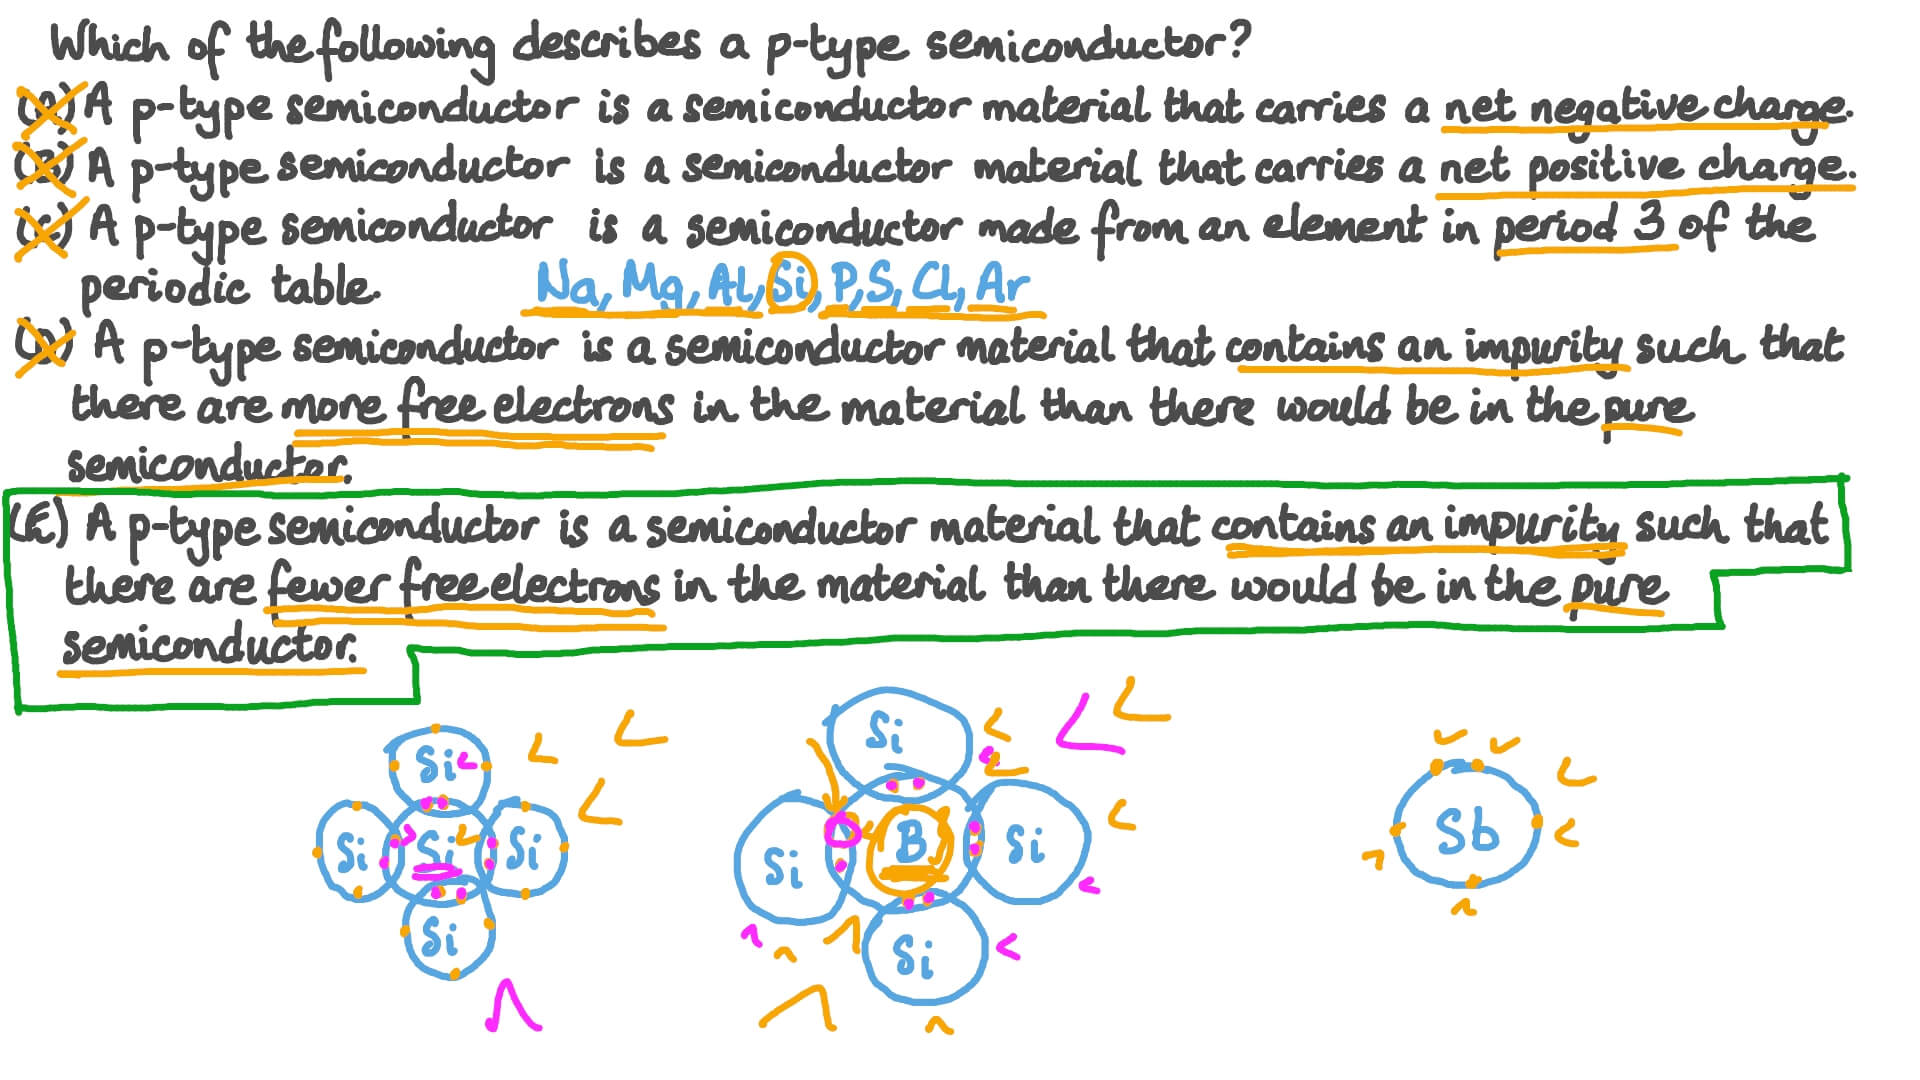 Which of the following describes a p-type semiconductor?
(A) A p-type semiconductor is a semiconductor material that carries a net negative charge.
(B) A p-type semiconductor is a semiconductor material that carries a net positive charge.
(C) A p-type semiconductor is a semiconductor made from an element in period 3 of the
periodic table. Na, Mg, Al, Si, P, S, Cl, Ar
(D) A p-type semiconductor is a semiconductor material that contains an impurity such that
there are more free electrons in the material than there would be in the pure
semiconductor.
(E) A p-type semiconductor is a semiconductor material that contains an impurity such that
there are fewer free electrons in the material than there would be in the pure
semiconductor.
Si
Si Si Si
Si
Si
Si B Si
Si
Sb